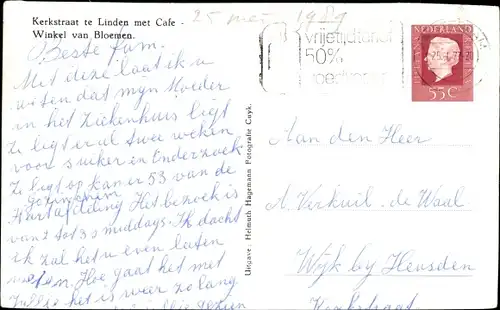 Kerkstraat te Linden met Cafe -
Winkel van Bloemen.
25 mei 1989
vrijetijdtarief
50%
NEDERLAND
55 C
Beste fam.
Met deze laat ik u
weten dat mijn Moeder
in het Ziekenhuis ligt
Ze ligt er al twee weken
voor suiker en Onderzoek.
Ze ligt op kamer 53 van de
Hartafdelding Het bezoek is
van 2 tot 3 s middags. Ik dacht
ik zal het u even laten
weten. Hoe gaat het met
jullie het is weer zo lang
Uitgave: Helmuth Hagemann Fotografie Cuyk.
Aan den Heer
A. Verkuil - de Waal
Wijk by Heusden